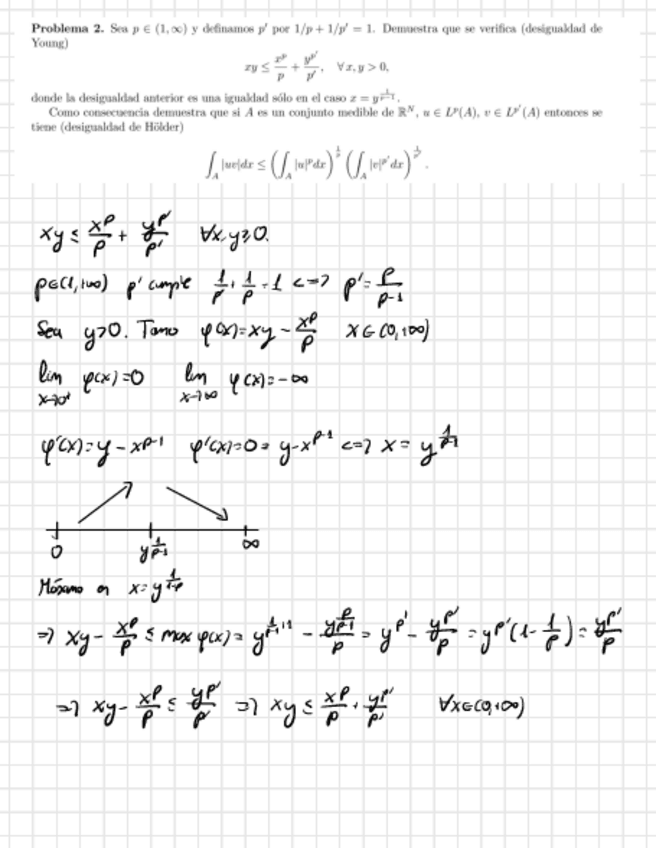 Problema 2. Sea p ∈ (1, ∞) y definamos p′ por 1/p + 1/p′ = 1. Demuestra que se verifica (desigualdad de
Young)
xy ≤ x^p/p + y^{p′}/p′, ∀x, y > 0,
donde la desigualdad anterior es una igualdad sólo en el caso x = y^{1/(p−1)}.
Como consecuencia demuestra que si A es un conjunto medible de ℝ^N, u ∈ L^p(A), v ∈ L^{p′}(A) entonces se
tiene (desigualdad de Hölder)
∫_A |uv|dx ≤ (∫_A |u|^p dx)^{1/p} (∫_A |v|^{p′} dx)^{1/p′}.
xy ≤ x^p/p + y^{p′}/p′ ∀x, y ≥ 0.
p∈(1,+∞) p′ cumple 1/p + 1/p′ = 1 <=> p′ = p/(p-1)
Sea y>0. Tomo φ(x)=xy - x^p/p x ∈ (0,+∞)
lim x→0⁺ φ(x)=0 lim x→∞ φ(x)=-∞
φ′(x)=y - x^{p-1} φ′(x)=0= y-x^{p-1} <=> x = y^{1/(p-1)}
0 y^{1/(p-1)} ∞
Máximo en x=y^{1/(1-p)}
=> xy - x^p/p ≤ max φ(x) = y^{1/(p-1)+1} - y^{p/(p-1)}/p = y^{p′} - y^{p′}/p = y^{p′}(1-1/p) = y^{p′}/p′
=> xy - x^p/p ≤ y^{p′}/p′ => xy ≤ x^p/p + y^{p′}/p′ ∀x∈(0,+∞)